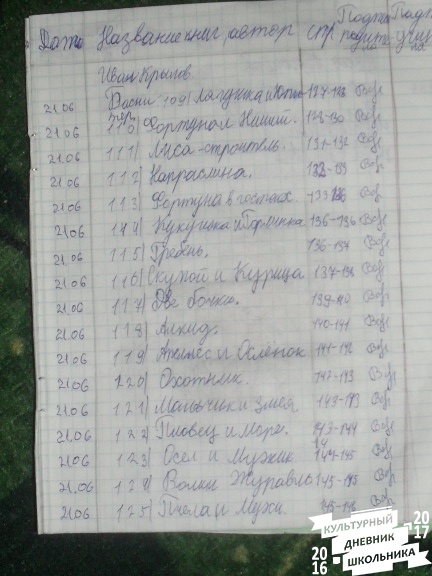 Дата Название книг, автор стр Подпись родит Подп учи
Иван Крылов.
21.06 Басни 109) Лягушка и Юпитер 127-128
21.06 110) Фортуна и Нищий. 128-130
21.06 111) Лиса-строитель. 131-132
21.06 112) Напраслина. 132-133
21.06 113) Фортуна в гостях. 133
21.06 114) Кукушка и Горлинка 136-136
21.06 115) Гребень. 136-137
21.06 116) Скупой и Курица 137-138
21.06 117) Две бочки. 139-140
21.06 118) Алкид. 140-141
21.06 119) Апеллес и Осленок 141-142
21.06 120) Охотник. 142-143
21.06 121) Мальчик и змея 143-143
21.06 122) Пловец и море. 143-144
21.06 123) Осел и Мужик 144-145
21.06 124) Волк и Журавль 145-145
21.06 125) Пчела и Мухи.
КУЛЬТУРНЫЙ
ДНЕВНИК
ШКОЛЬНИКА
20 16
20 17